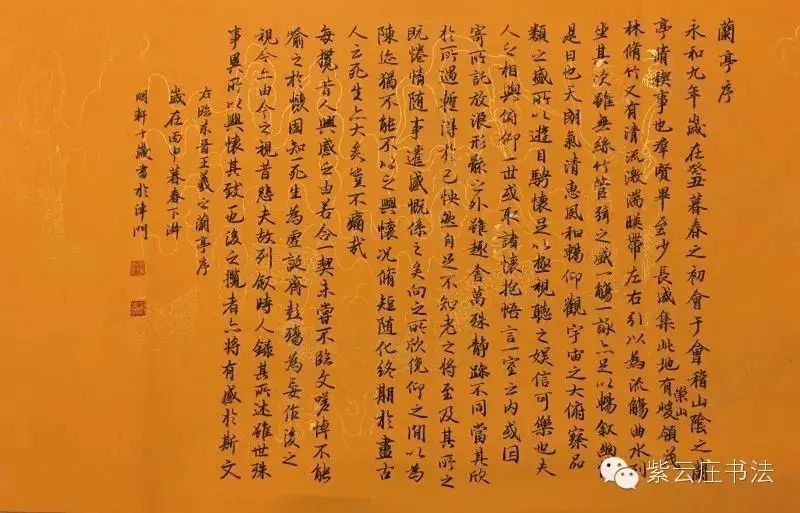 蘭亭序
永和九年歲在癸暮春之初會于會稽山陰之蘭
亭脩稧事也羣賢畢至少長咸集此地有崇山峻領茂
林脩竹又有清流激湍暎帶左右引以為流觴曲水列
坐其次雖無絲竹管弦之盛一觴一詠亦足以暢敘幽
是日也天朗氣清惠風和暢仰觀宇宙之大俯察品
類之盛所以遊目騁懷足以極視聽之娛信可樂也夫
人之相與俯仰一世或取諸懷抱悟言一室之內或因
寄所託放浪形骸之外雖趣舍萬殊靜躁不同當其欣
於所遇暫得於己怏然自足不知老之將至及其所之
既惓情隨事遷感慨係之矣向之所欣俛仰之閒以為
陳迹猶不能不以之興懷況脩短隨化終期於盡古
人云死生亦大矣豈不痛哉
每攬昔人興感之由若合一契未嘗不臨文嗟悼不能
喻之於懷固知一死生為虛誕齊彭殤為妄作後之
視今亦由今之視昔悲夫故列敘時人錄其所述雖世殊
事異所以興懷其致一也後之攬者亦將有感於斯文
右臨東晉王羲之蘭亭序
歲在丙申暮春下澣
明軒十歲書於津門
紫云庄书法